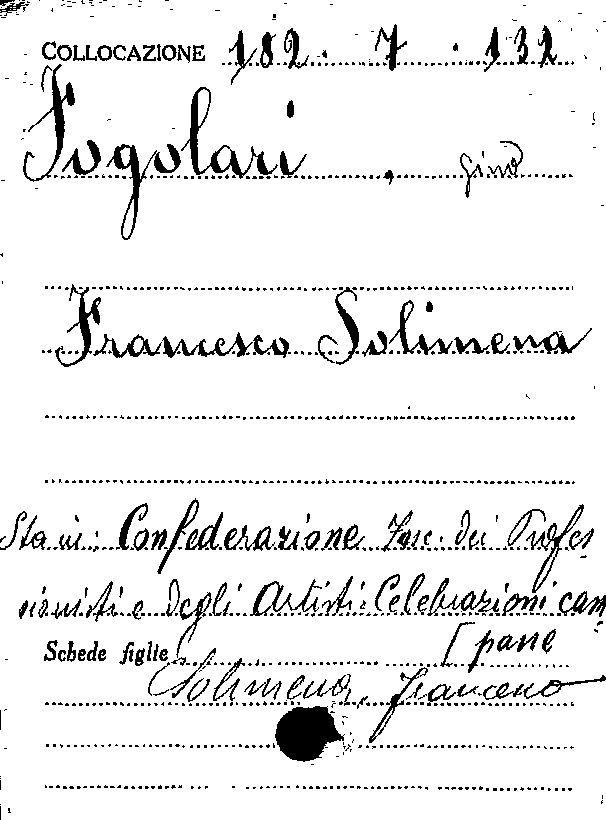 COLLOCAZIONE 182. 7 . 132
Fogolari, Gino
Francesco Solimena
Sta in: Confederazione Fasc. dei Profes
sionisti e degli Artisti: Celebrazioni cam
[pane
Schede figlie
Solimena, Francesco